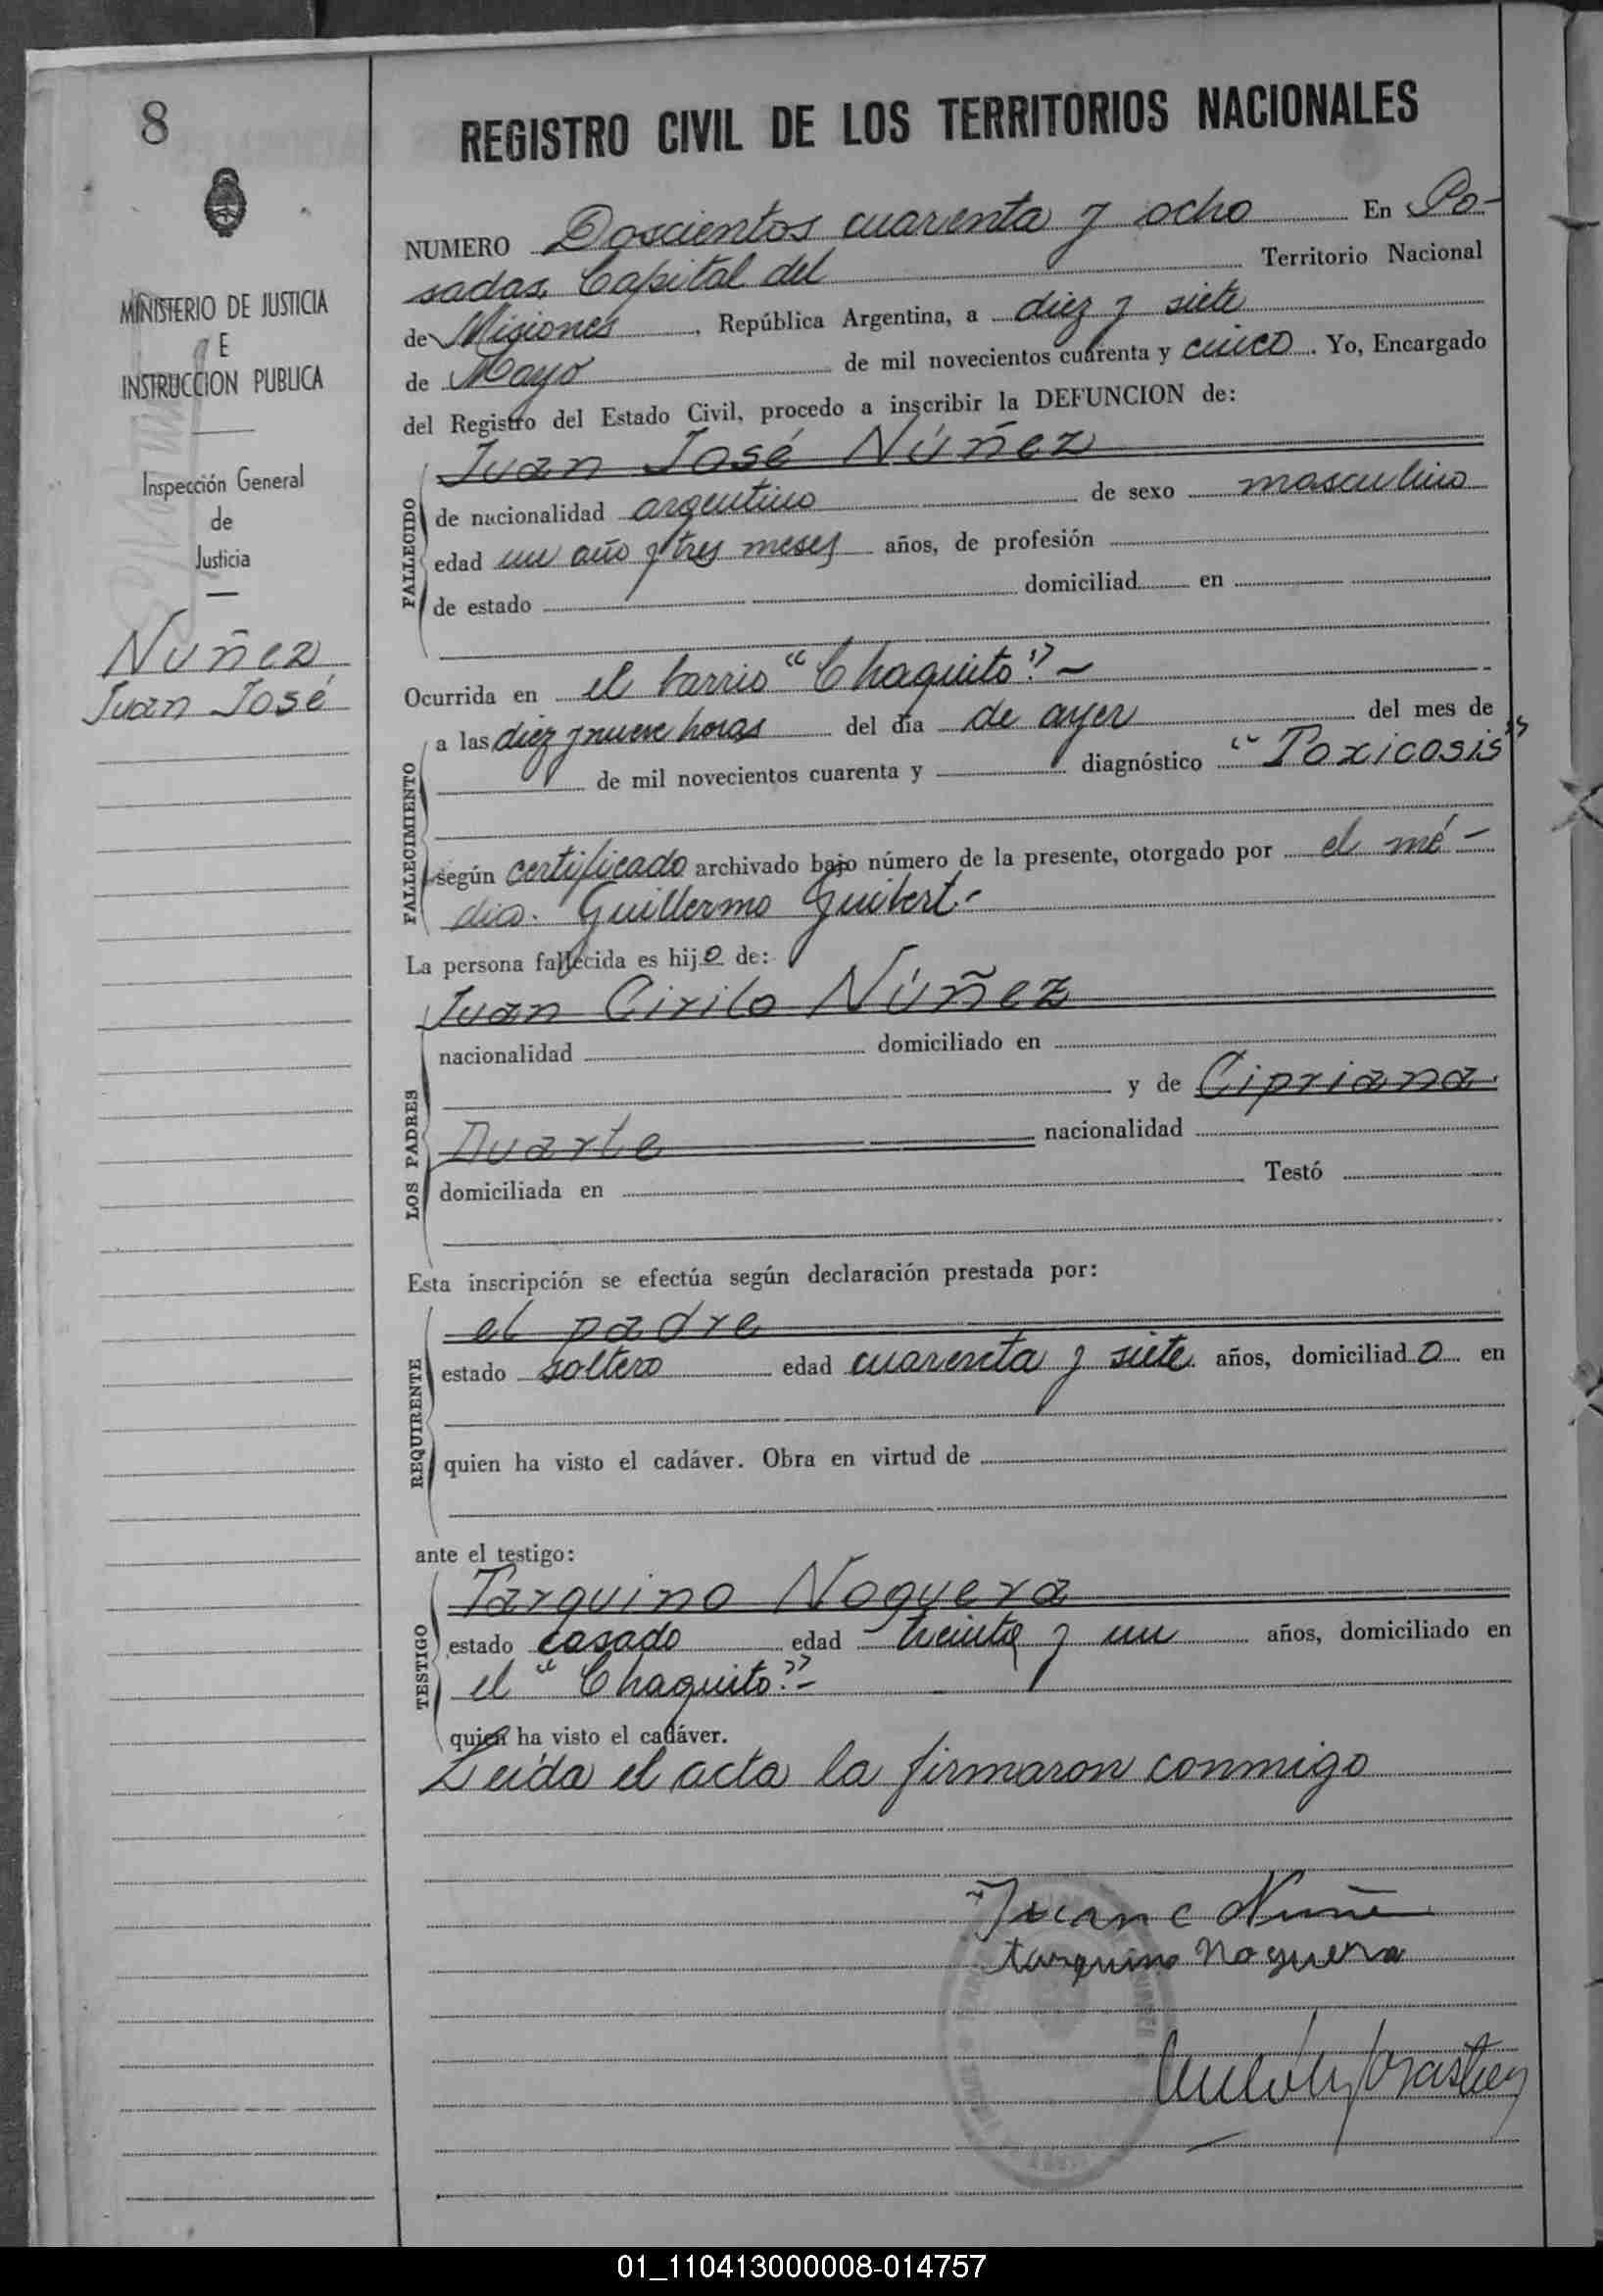 8
MINISTERIO DE JUSTICIA
E
INSTRUCCION PUBLICA
Inspección General
de
Justicia
Nuñez
Juan José
REGISTRO CIVIL DE LOS TERRITORIOS NACIONALES
NUMERO Doscientos cuarenta y ocho En Po-
sadas, Capital del Territorio Nacional
de Misiones, República Argentina, a diez y siete
de Mayo de mil novecientos cuarenta y cinco. Yo, Encargado
del Registro del Estado Civil, procedo a inscribir la DEFUNCION de:
Juan José Núñez
FALLECIDO
de nacionalidad argentino de sexo masculino
edad un año y tres meses años, de profesión
de estado domiciliad en
Ocurrida en el barrio "Chaquito".-
FALLECIMIENTO
a las diez y nueve horas del día de ayer del mes de
de mil novecientos cuarenta y diagnóstico "Toxicosis"
según certificado archivado bajo número de la presente, otorgado por el mé-
dico. Guillermo Guibert.-
La persona fallecida es hijo de:
Juan Cirilo Núñez
LOS PADRES
nacionalidad domiciliado en
y de Cipriana
Duarte nacionalidad
domiciliada en Testó
Esta inscripción se efectúa según declaración prestada por:
el padre
REQUIRENTE
estado soltero edad cuarenta y siete años, domiciliado en
quien ha visto el cadáver. Obra en virtud de
ante el testigo:
Tarquino Noguera
TESTIGO
estado casado edad treinta y un años, domiciliado en
el "Chaquito".-
quien ha visto el cadáver.
Leída el acta la firmaron conmigo
Juan C Nuñe
tarquino Noguera
01_110413000008-014757